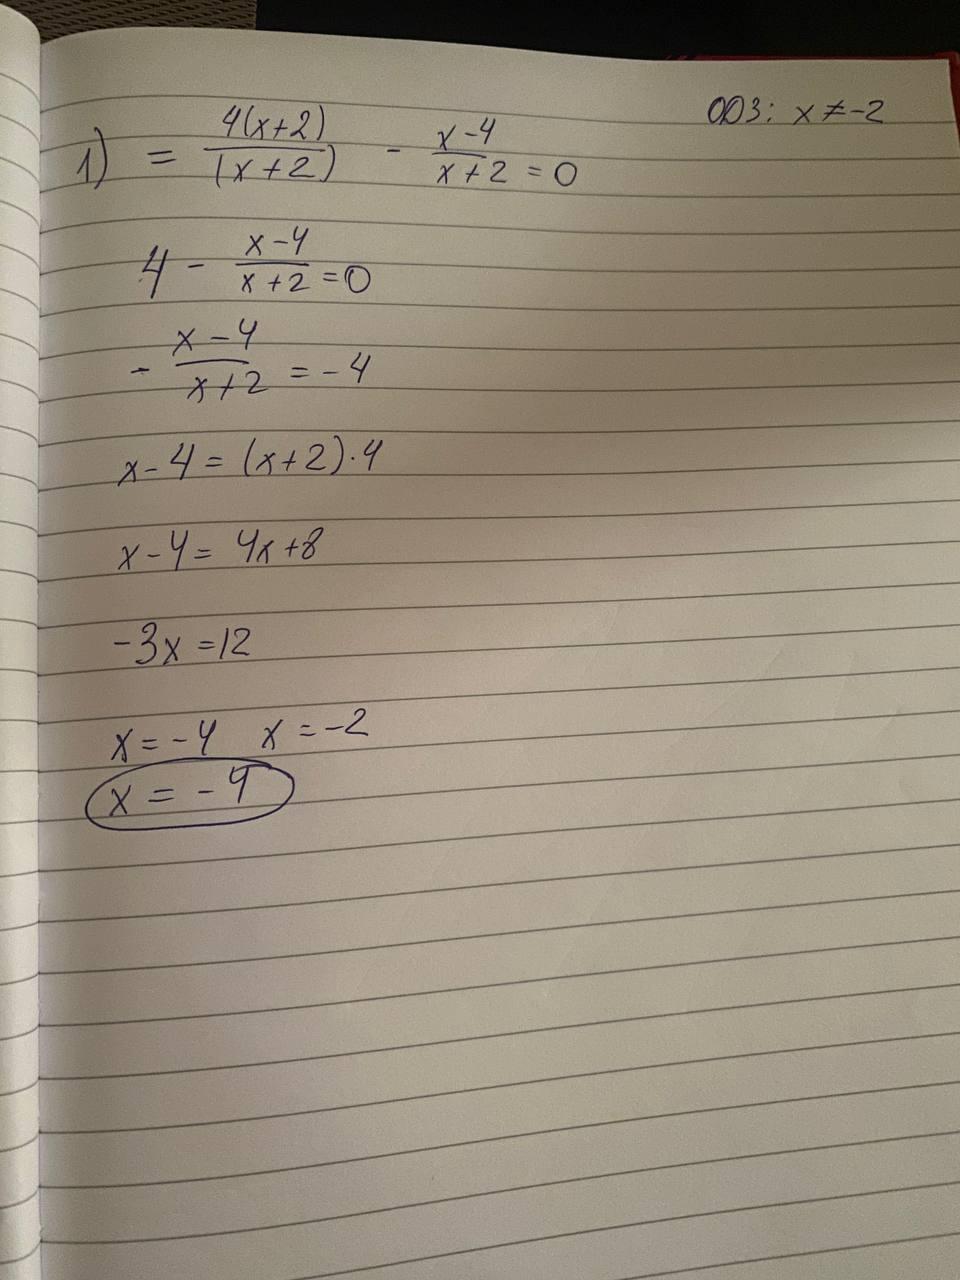 ОДЗ: x ≠ -2
1) = 4(x+2)/(x+2) - x-4/x+2 = 0
4 - x-4/x+2 = 0
- x-4/x+2 = -4
x-4 = (x+2)·4
x-4 = 4x+8
-3x = 12
x = -4 x = -2
x = -4